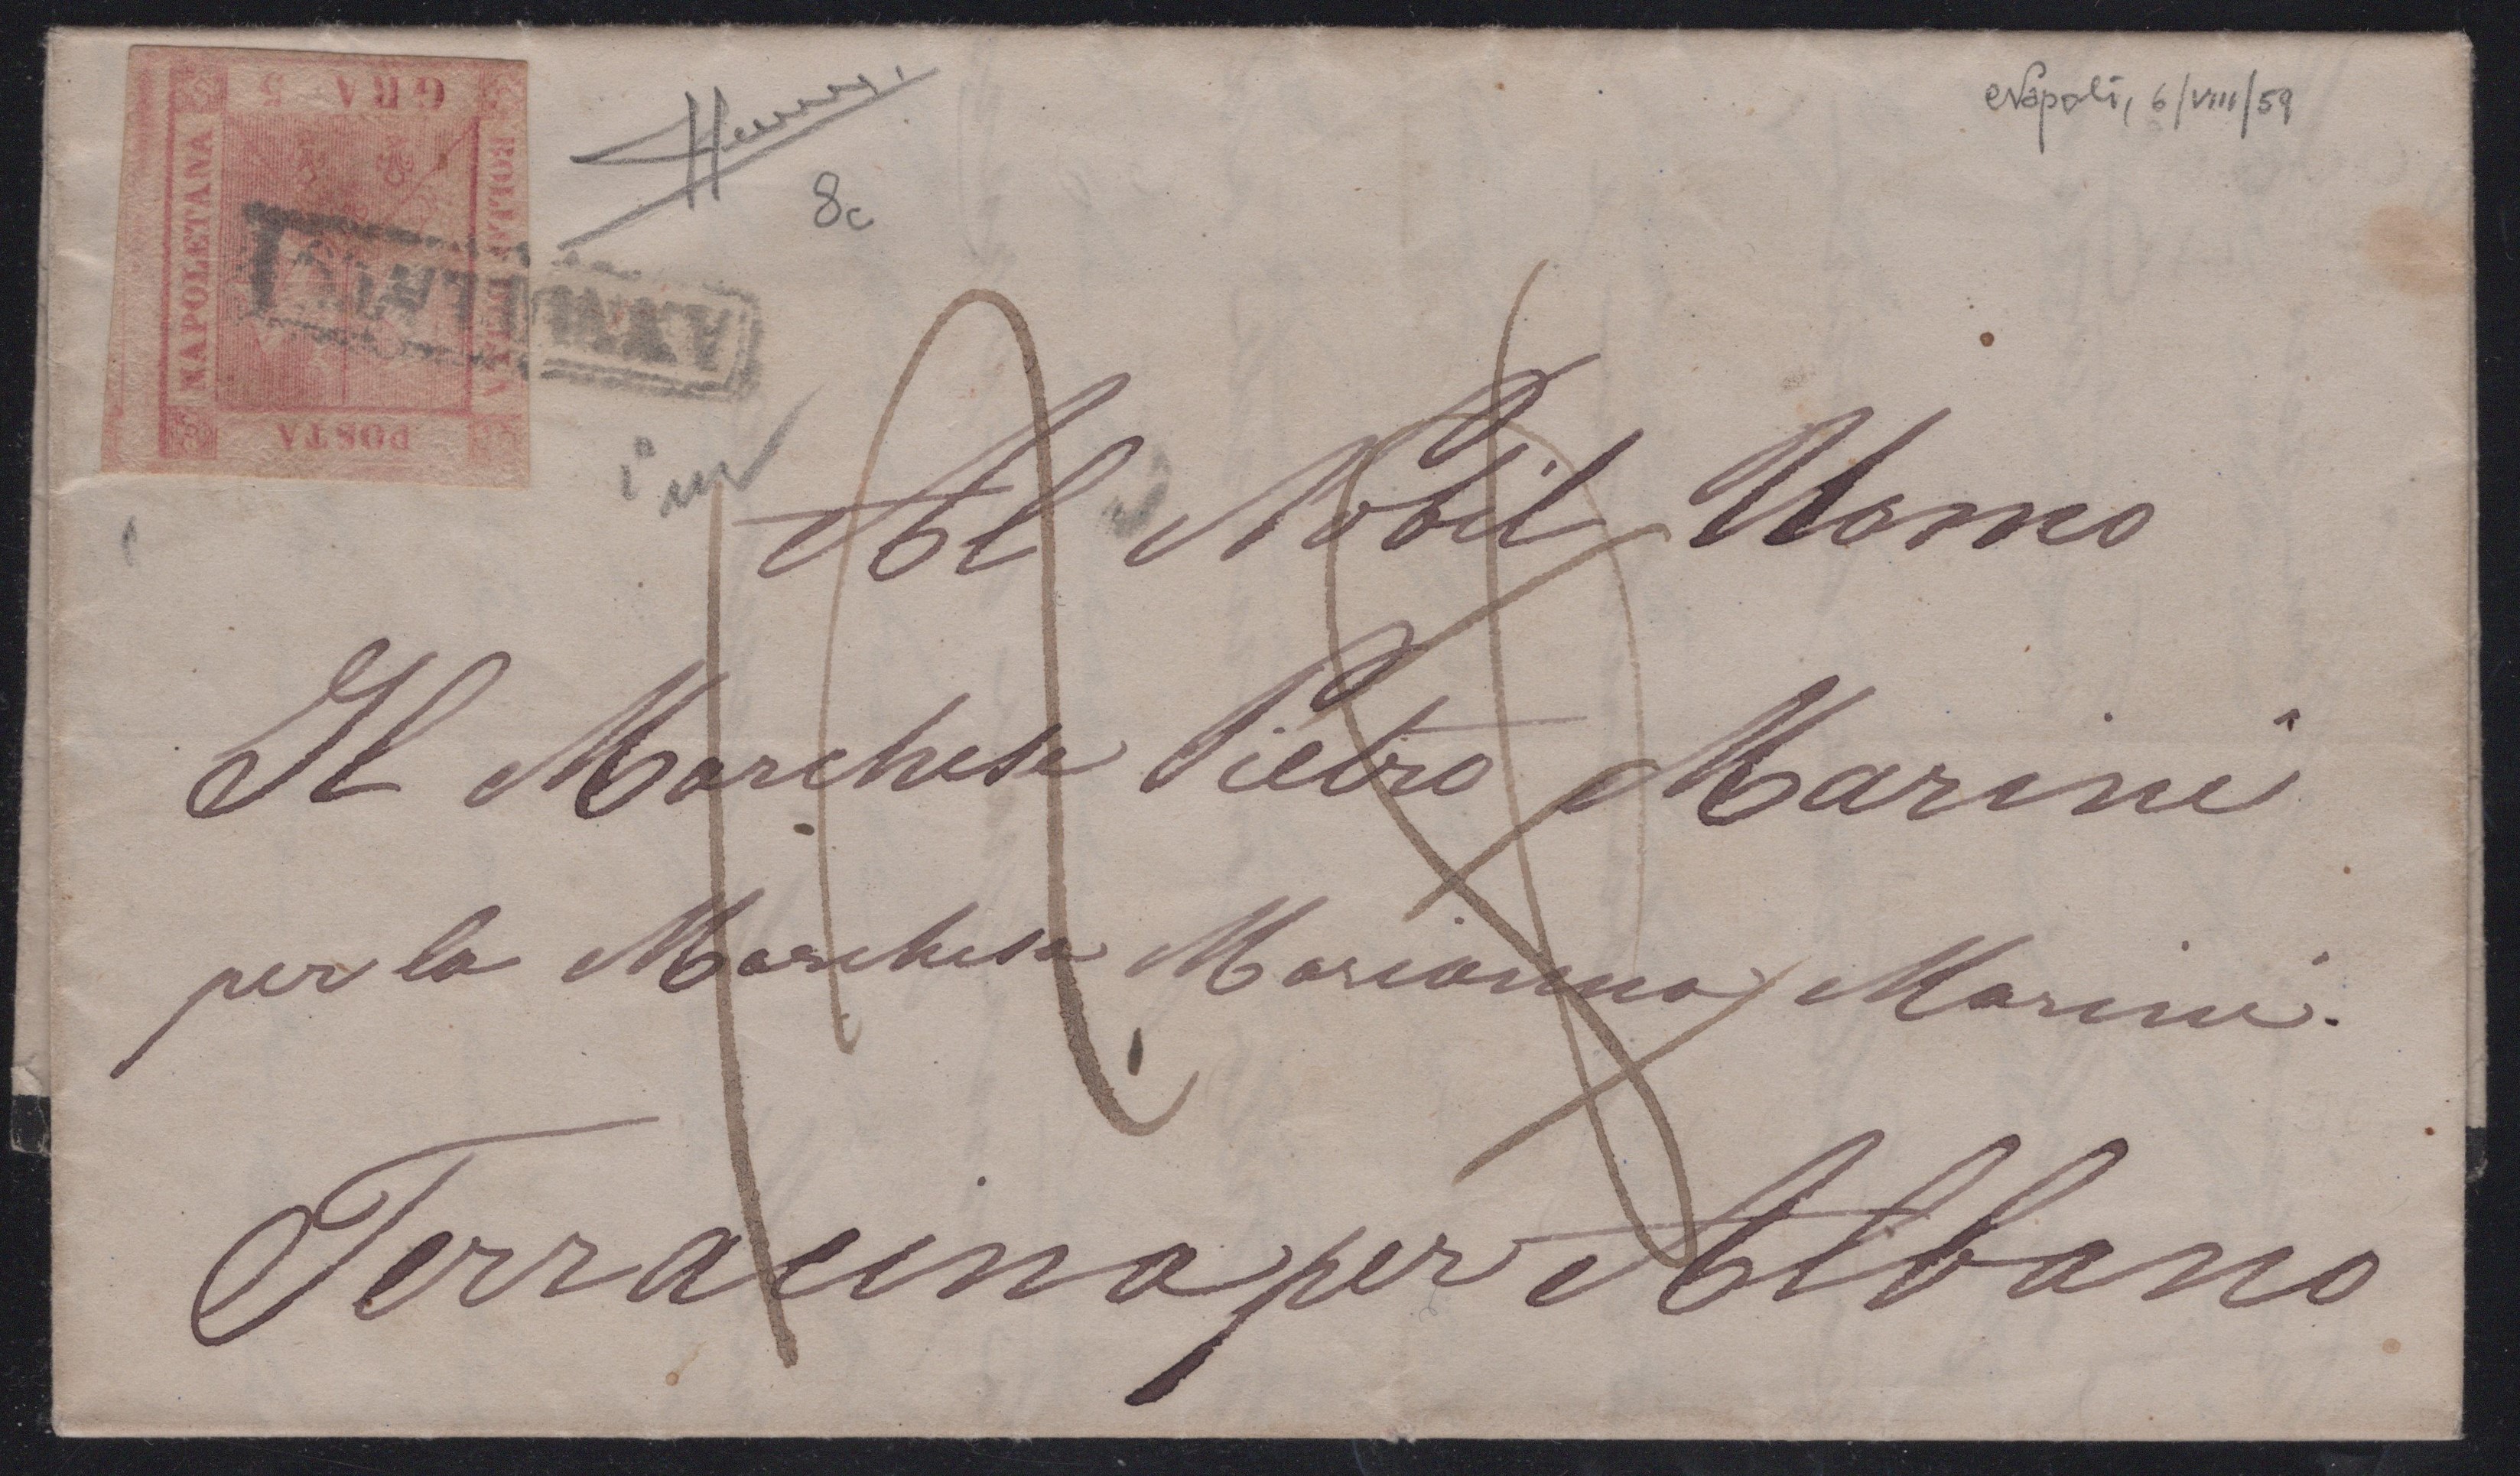 GRA 5
BOLLO DELLA
POSTA
NAPOLETANA
ANNULLATO
8c
Napoli, 6/VIII/59
Al Nobil Uomo
Il Marchese Pietro Marini
per la Marchesa Marianna Marini.
Terracina per Albano